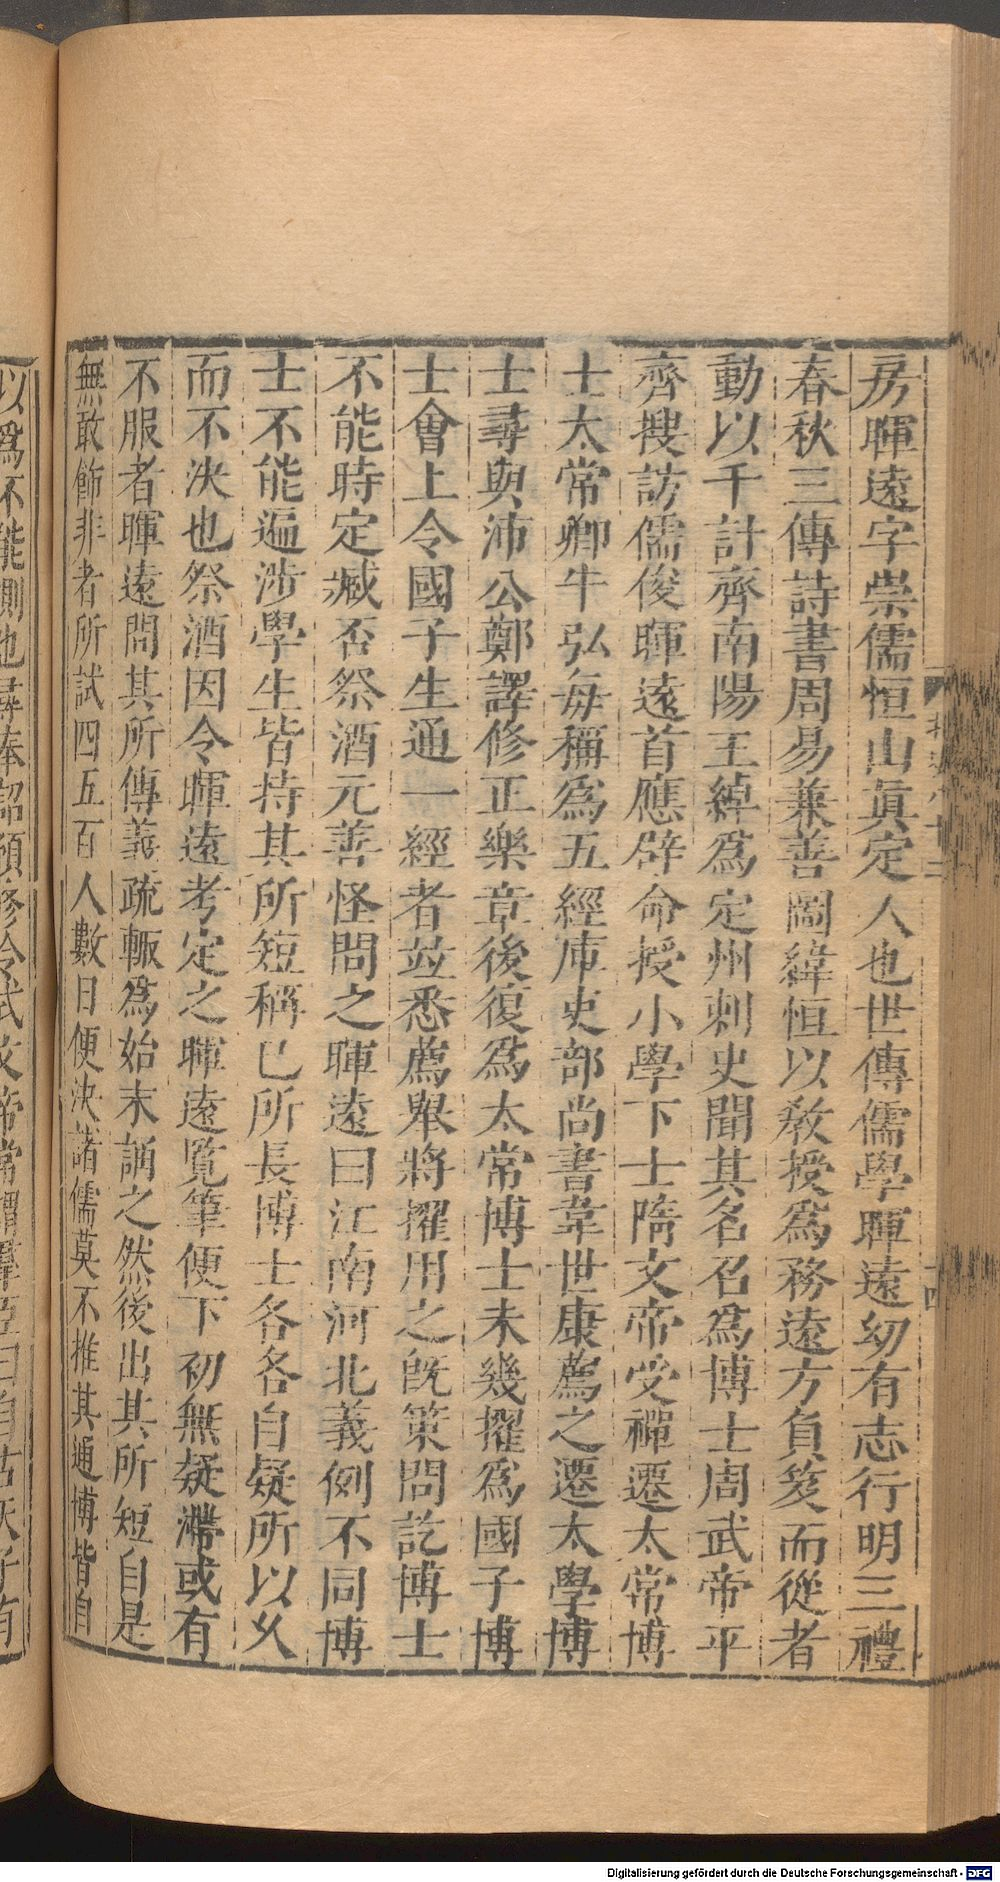 房暉遠字崇儒恒山眞定人也世傳儒學暉遠幼有志行明三禮
春秋三傳詩書周易兼善圖緯恒以敎授爲務遠方負笈而從者
動以千計齊南陽王綽爲定州刺史聞其名召爲博士周武帝平
齊搜訪儒俊暉遠首應辟命授小學下士隋文帝受禪遷太常博
士太常卿牛弘每稱爲五經庫吏部尚書韋世康薦之遷太學博
士尋與沛公鄭譯修正樂章後復爲太常博士未幾擢爲國子博
士會上令國子生通一經者並悉薦舉將擢用之旣策問訖博士
不能時定臧否祭酒元善怪問之暉遠曰江南河北義例不同博
士不能遍涉學生皆持其所短稱已所長博士各各自疑所以久
而不決也祭酒因令暉遠考定之暉遠覽筆便下初無疑滯或有
不服者暉遠問其所傳義疏輒爲始末誦之然後出其所短自是
無敢飾非者所試四五百人數日便決諸儒莫不推其通博皆自
以爲不能測也尋奉詔預修令式文帝常謂羣臣曰自古天子有
Digitalisierung gefördert durch die Deutsche Forschungsgemeinschaft - DFG